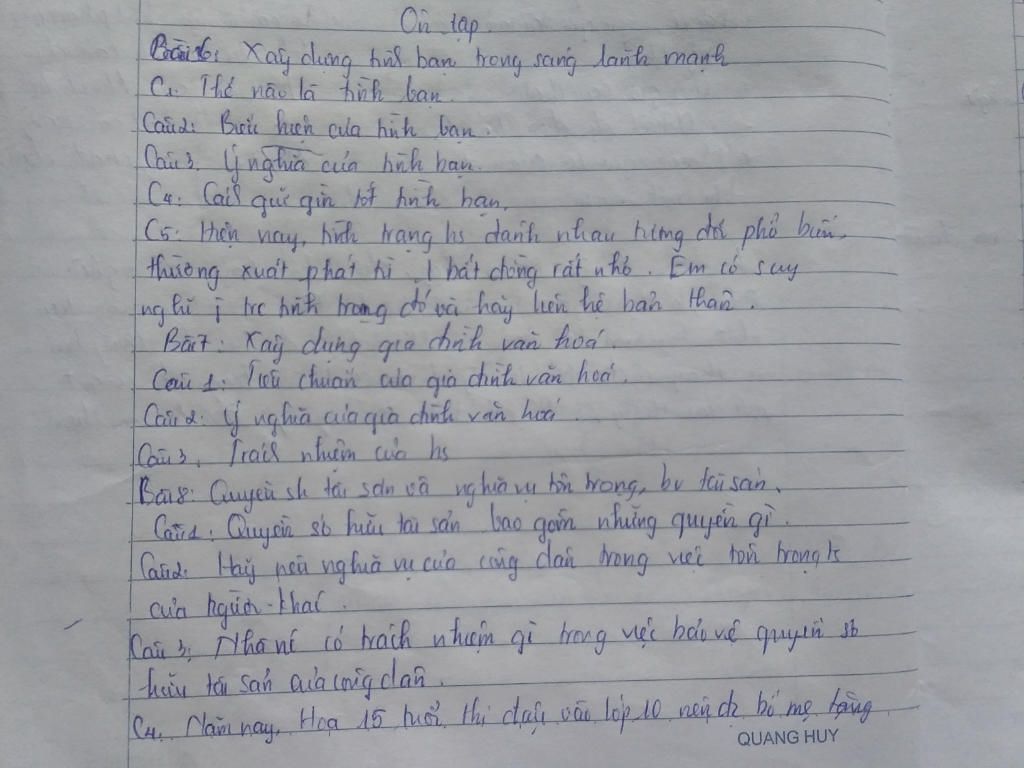 Ôn tập
Bài 6: Xây dựng tình bạn trong sáng lành mạnh
C1. Thế nào là tình bạn.
Câu 2: Biểu hiện của tình bạn.
Câu 3. Ý nghĩa của tình bạn.
C4: Cách giữ gìn tốt tình bạn.
C5: Hiện nay, tình trạng hs đánh nhau tương đối phổ biến,
thường xuất phát từ 1 bất đồng rất nhỏ. Em có suy
nghĩ j trc tình trạng đó và hãy liên hệ bản thân.
Bài 7: Xây dựng gia đình văn hoá.
Câu 1: Tiêu chuẩn của gia đình văn hoá.
Câu 2: Ý nghĩa của gia đình văn hoá.
Câu 3. Trách nhiệm của hs
Bài 8: Quyền sh tài sản và nghĩa vụ tôn trọng, bv tài sản.
Câu 1: Quyền sở hữu tài sản bao gồm những quyền gì.
Câu 2: Hãy nêu nghĩa vụ của công dân trong việc tôn trọng ts
của người khác.
Câu 3: Nhà nc có trách nhiệm gì trong việc bảo vệ quyền sở
hữu tài sản của công dân.
C4. Năm nay, Hoa 15 tuổi, thi đậu vào lớp 10 nên đc bố mẹ tặng
QUANG HUY